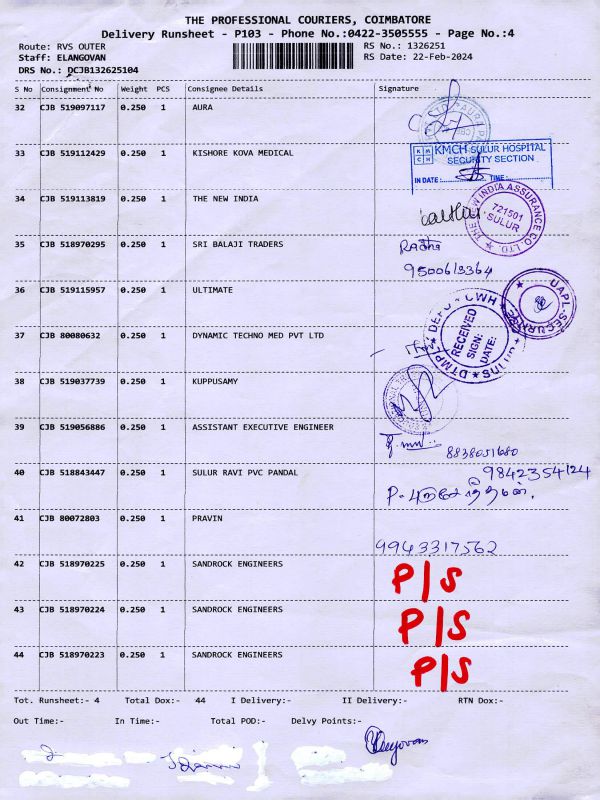 THE PROFESSIONAL COURIERS, COIMBATORE
Delivery Runsheet - P103 - Phone No.:0422-3505555 - Page No.:4
Route: RVS OUTER RS No.: 1326251
Staff: ELANGOVAN RS Date: 22-Feb-2024
DRS No.: DCJB132625104
S No Consignment No Weight PCS Consignee Details Signature
32 CJB 519097117 0.250 1 AURA
33 CJB 519112429 0.250 1 KISHORE KOVA MEDICAL
KMCH SULUR HOSPITAL
SECURITY SECTION
IN DATE: TIME:
34 CJB 519113819 0.250 1 THE NEW INDIA
THE NEW INDIA ASSURANCE CO. LTD.
721501
SULUR
35 CJB 518970295 0.250 1 SRI BALAJI TRADERS
Radha
9500613364
36 CJB 519115957 0.250 1 ULTIMATE
UAPL-SECURITY
37 CJB 80080632 0.250 1 DYNAMIC TECHNO MED PVT LTD
RECEIVED
SIGN:
DATE:
38 CJB 519037739 0.250 1 KUPPUSAMY
39 CJB 519056886 0.250 1 ASSISTANT EXECUTIVE ENGINEER
8838051680
40 CJB 518843447 0.250 1 SULUR RAVI PVC PANDAL
9842354124
41 CJB 80072803 0.250 1 PRAVIN
9943317562
42 CJB 518970225 0.250 1 SANDROCK ENGINEERS P/S
43 CJB 518970224 0.250 1 SANDROCK ENGINEERS P/S
44 CJB 518970223 0.250 1 SANDROCK ENGINEERS P/S
Tot. Runsheet:- 4 Total Dox:- 44 I Delivery:- II Delivery:- RTN Dox:-
Out Time:- In Time:- Total POD:- Delvy Points:-